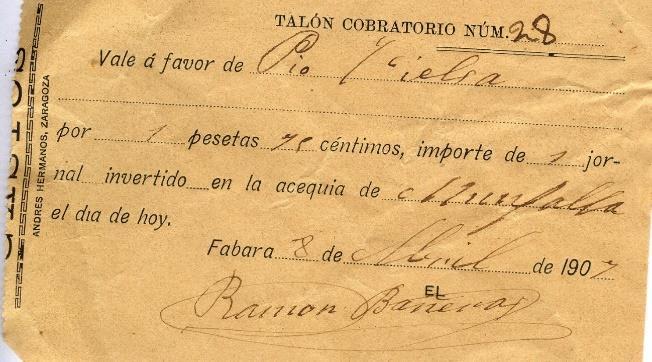 TALÓN COBRATORIO NÚM. 28
Vale á favor de Pio
por 1 pesetas 75 céntimos, importe de 1 jor-
nal invertido en la acequia de
el dia de hoy.
Fabara 8 de Abril de 1907
EL
Ramon
ANDRES HERMANOS, ZARAGOZA